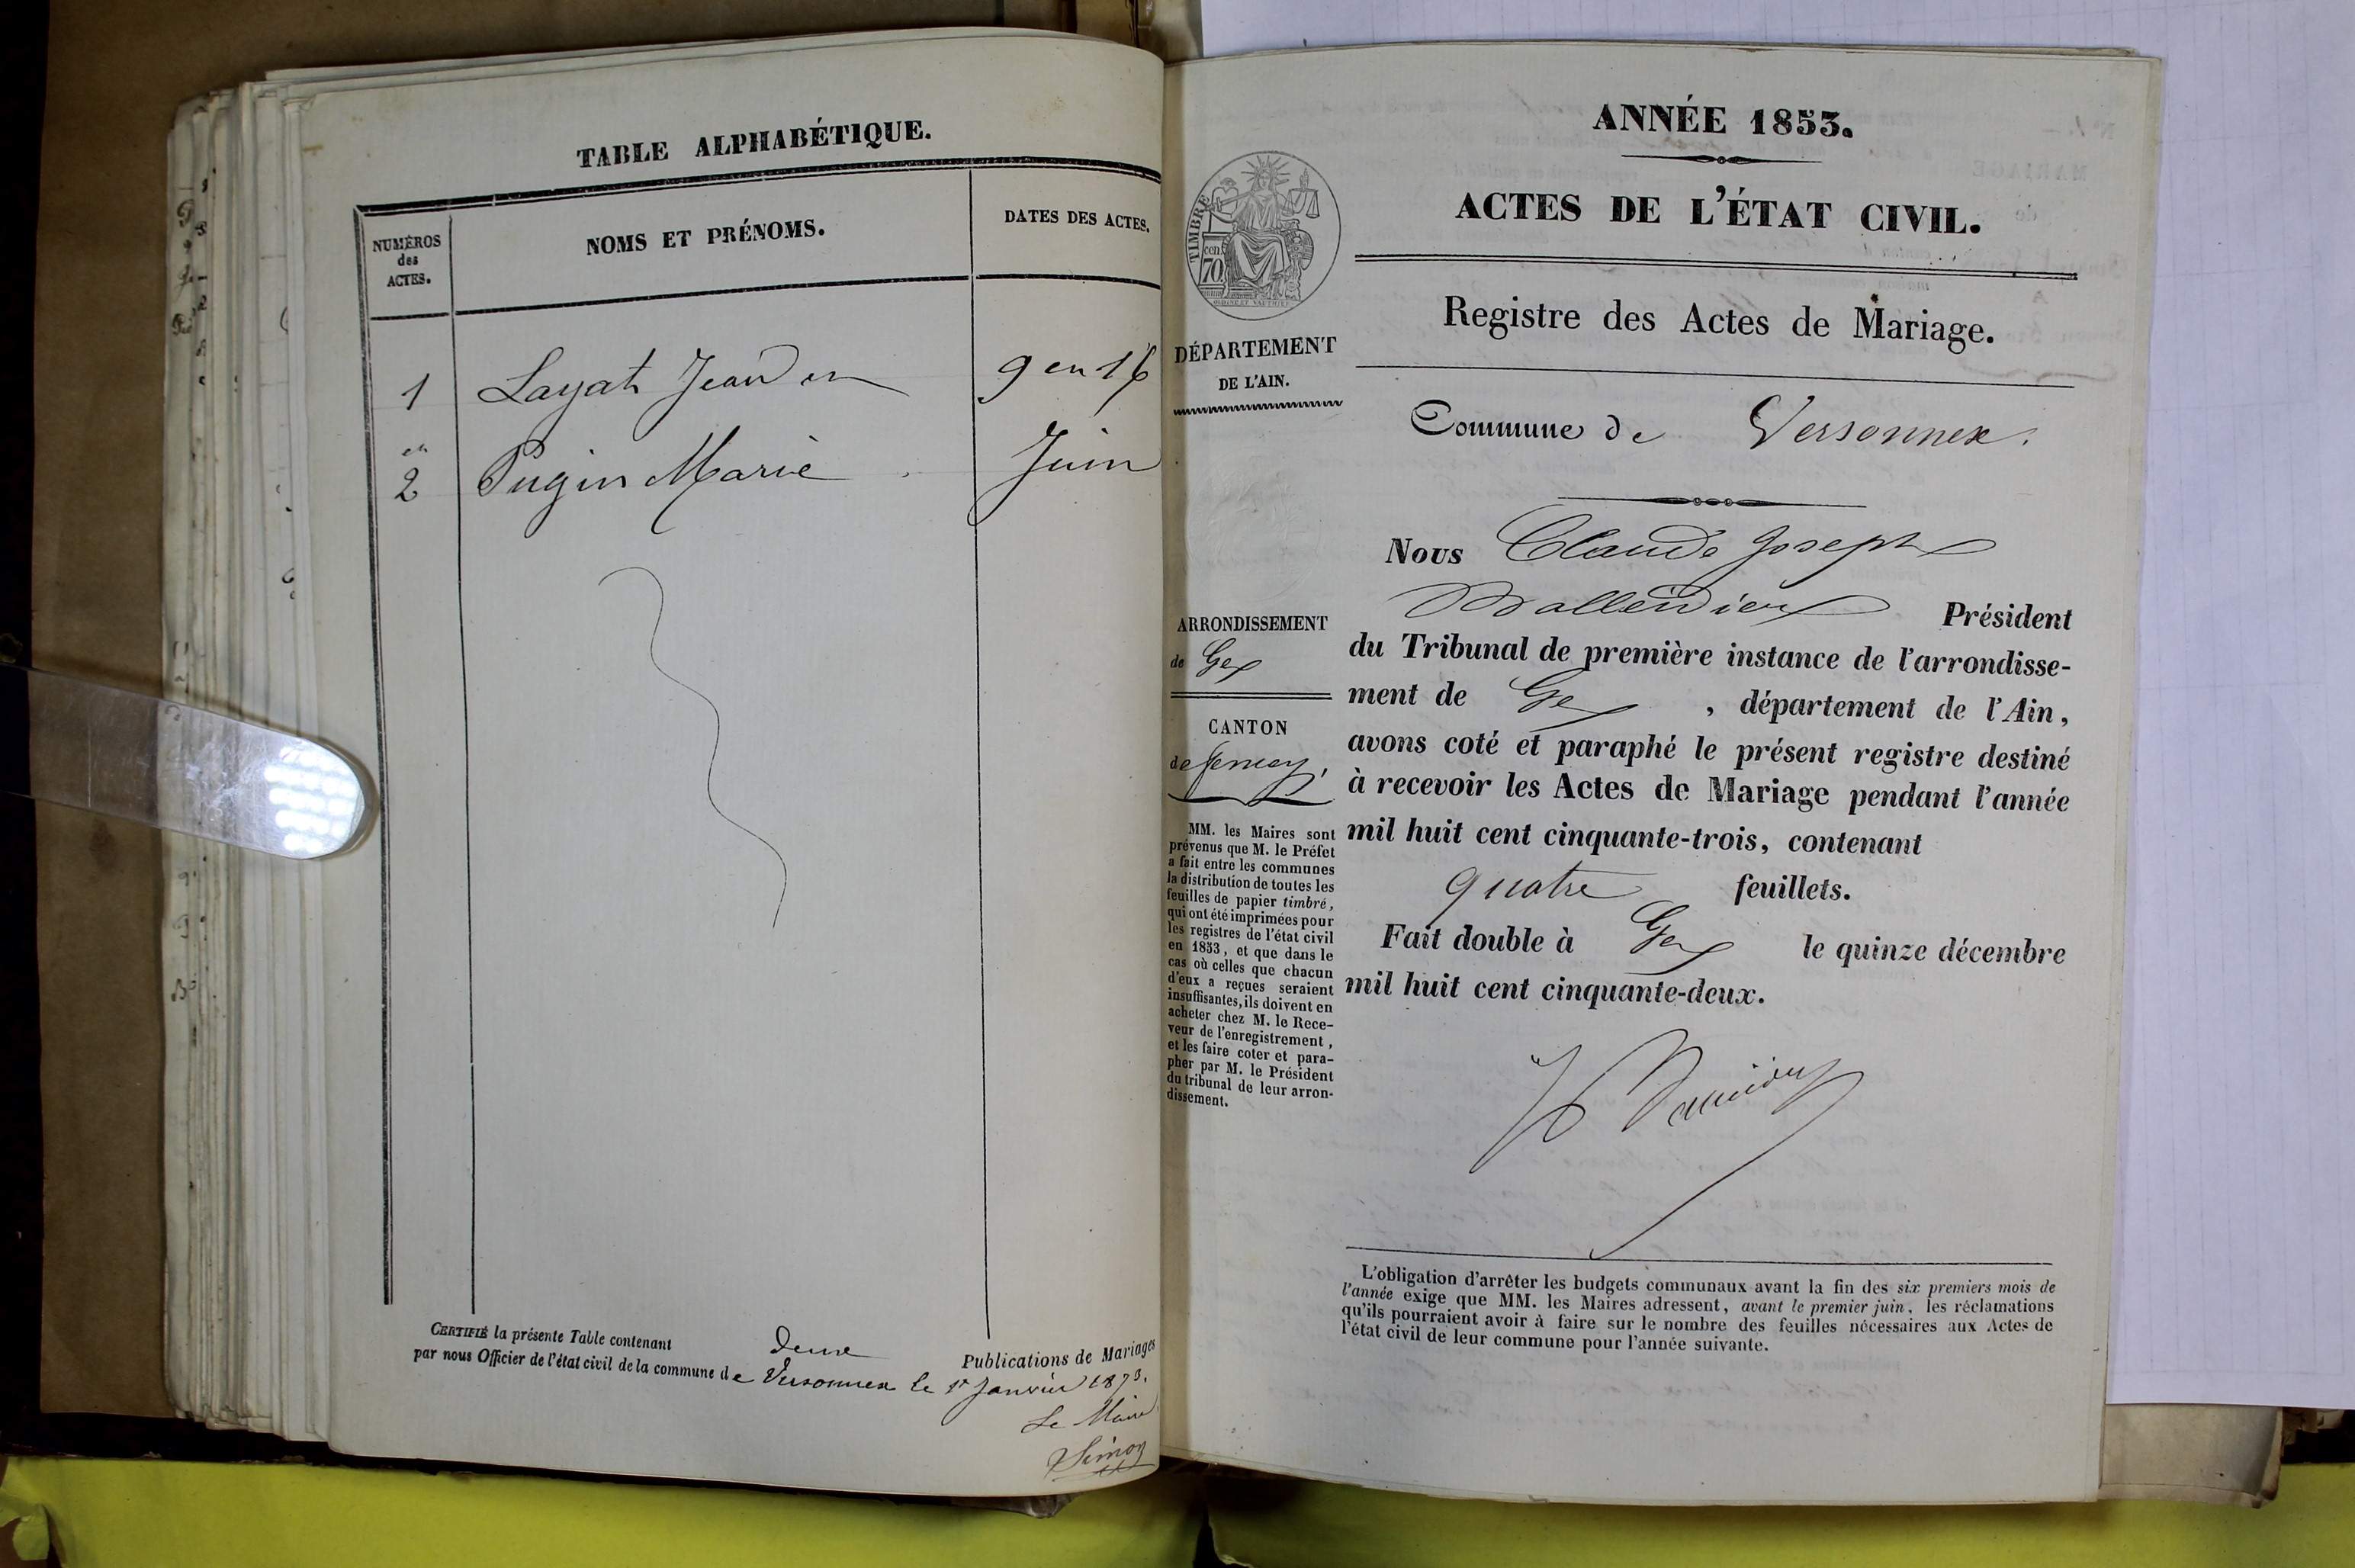 TABLE ALPHABÉTIQUE.
NUMÉROS
des
ACTES.
NOMS ET PRÉNOMS.
DATES DES ACTES.
1 Layat Jean en 9 en 16
et
2 Pugin Marie Juin
CERTIFIÉ la présente Table contenant deux Publications de Mariages
par nous Officier de l'état civil de la commune de Versonnex le 1er Janvier 1873.
Le Maire
Simon
TIMBRE
70 cen
DÉPARTEMENT
DE L'AIN.
ARRONDISSEMENT
de Gex
CANTON
de Ferney,
MM. les Maires sont
prévenus que M. le Préfet
a fait entre les communes
la distribution de toutes les
feuilles de papier timbré,
qui ont été imprimées pour
les registres de l'état civil
en 1853, et que dans le
cas où celles que chacun
d'eux a reçues seraient
insuffisantes, ils doivent en
acheter chez M. le Rece-
veur de l'enregistrement,
et les faire coter et para-
pher par M. le Président
du tribunal de leur arron-
dissement.
ANNÉE 1853.
ACTES DE L'ÉTAT CIVIL.
Registre des Actes de Mariage.
Commune de Versonnex.
Nous Claude Joseph
Président
du Tribunal de première instance de l'arrondisse-
ment de Gex, département de l'Ain,
avons coté et paraphé le présent registre destiné
à recevoir les Actes de Mariage pendant l'année
mil huit cent cinquante-trois, contenant
quatre feuillets.
Fait double à Gex le quinze décembre
mil huit cent cinquante-deux.
L'obligation d'arrêter les budgets communaux avant la fin des six premiers mois de
l'année exige que MM. les Maires adressent, avant le premier juin, les réclamations
qu'ils pourraient avoir à faire sur le nombre des feuilles nécessaires aux Actes de
l'état civil de leur commune pour l'année suivante.